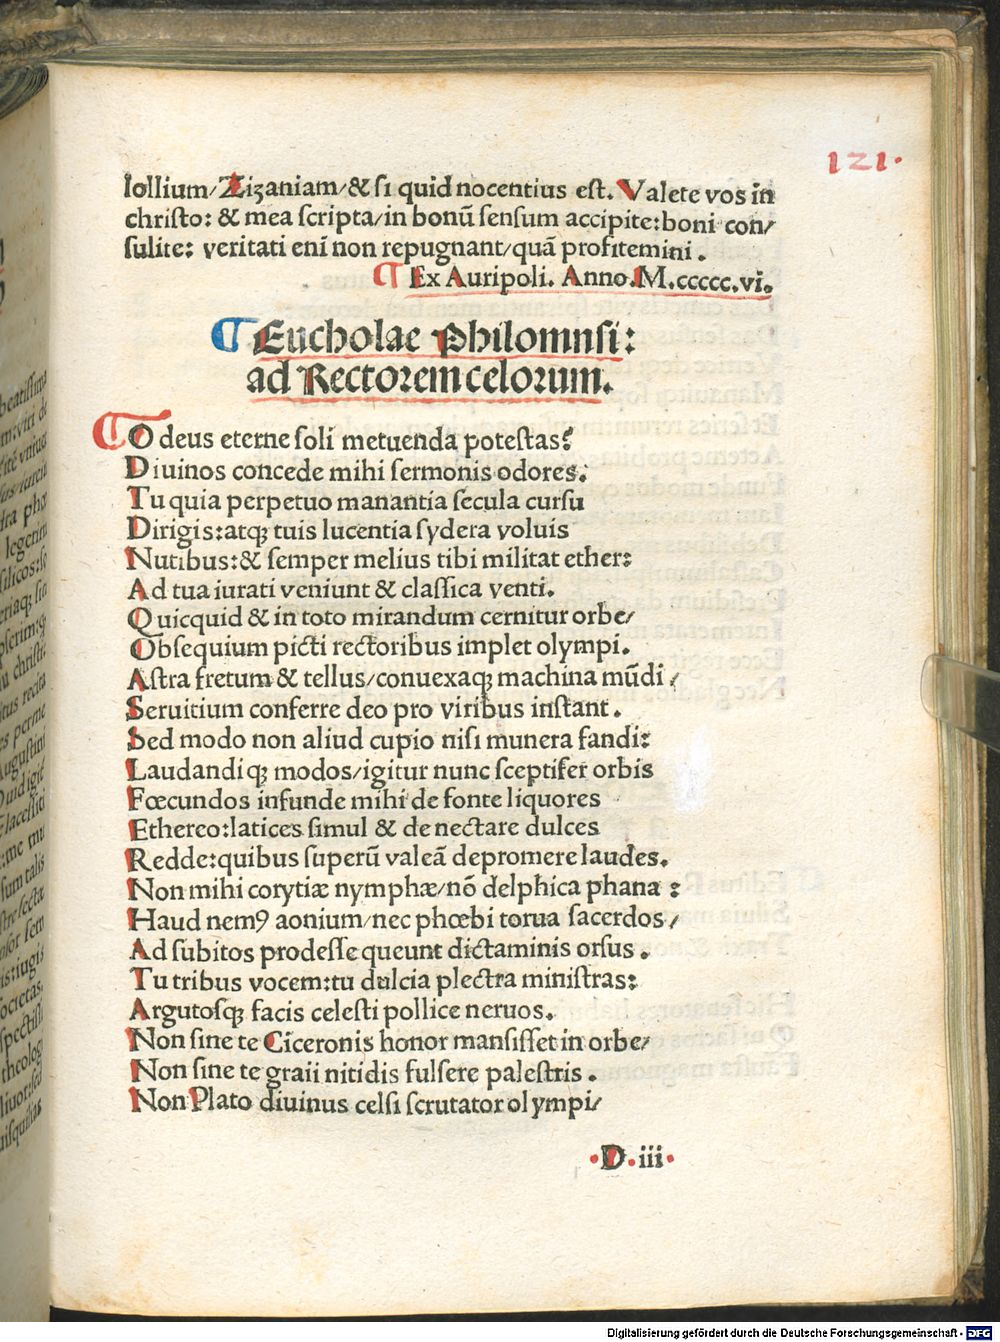 121.
lollium/ Zizaniam/ & si quid nocentius est. Valete vos in
christo: & mea scripta/ in bonū sensum accipite: boni con/
sulite: veritati eni non repugnant/ quā profitemini.
¶ Ex Auripoli. Anno. M.ccccc.vi.
¶ Eucholae Philomnsi:
ad Rectorem celorum.
¶ O deus eterne soli metuenda potestas?
Diuinos concede mihi sermonis odores:
Tu quia perpetuo manantia secula cursu
Dirigis: atqꝫ tuis lucentia sydera voluis
Nutibus: & semper melius tibi militat ether:
Ad tua iurati veniunt & classica venti.
Quicquid & in toto mirandum cernitur orbe/
Obsequium picti rectoribus implet olympi.
Astra fretum & tellus/ conuexaqꝫ machina mūdi/
Seruitium conferre deo pro viribus instant.
Sed modo non aliud cupio nisi munera fandi:
Laudandiqꝫ modos/ igitur nunc sceptifer orbis
Fœcundos infunde mihi de fonte liquores
Ethereo: latices simul & de nectare dulces
Redde: quibus superū valeā depromere laudes.
Non mihi corytiæ nymphæ/ nō delphica phana:
Haud nemꝰ aonium/ nec phœbi torua sacerdos/
Ad subitos prodesse queunt dictaminis orsus.
Tu tribus vocem: tu dulcia plectra ministras:
Argutosqꝫ facis celesti pollice neruos.
Non sine te Ciceronis honor mansisset in orbe/
Non sine te graii nitidis fulsere palestris.
Non Plato diuinus celsi scrutator olympi/
.D.iii.
Digitalisierung gefördert durch die Deutsche Forschungsgemeinschaft - DFG